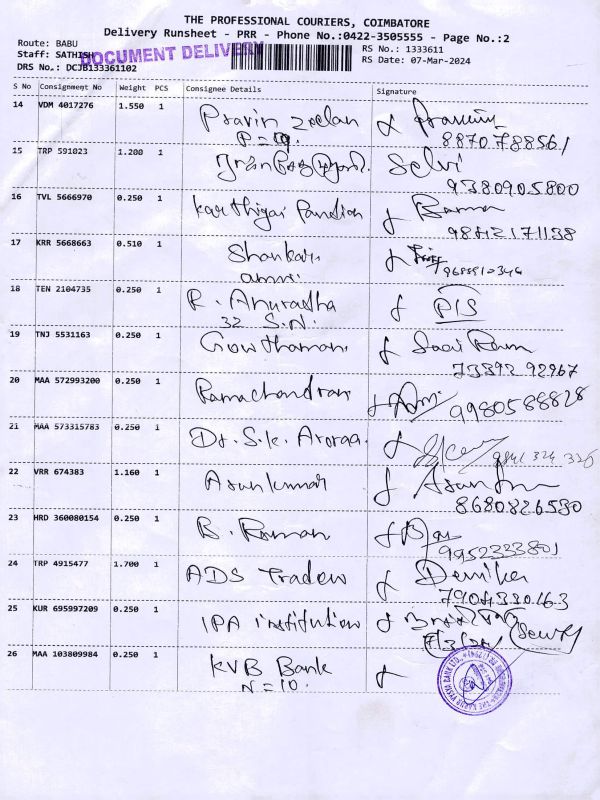 THE PROFESSIONAL COURIERS, COIMBATORE
Delivery Runsheet - PRR - Phone No.:0422-3505555 - Page No.:2
Route: BABU
Staff: SATHISH
DOCUMENT DELIVERY
RS No.: 1333611
RS Date: 07-Mar-2024
DRS No.: DCJB133361102
S No Consignment No Weight PCS Consignee Details Signature
14 VDM 4017276 1.550 1 Pravin
8870788561
15 TRP 591023 1.200 1 Selvi
9380905800
16 TVL 5666970 0.250 1 Karthigai Pandian
9842171138
17 KRR 5668663 0.510 1 Shankar
18 TEN 2104735 0.250 1 R. Anuradha
32 S.N.
19 TNJ 5531163 0.250 1 Gowthaman
73392 92967
20 MAA 572993200 0.250 1 Ramachandran
9980588828
21 MAA 573315783 0.250 1 Dr. S.K. Aroraa
9841 324 326
22 VRR 674383 1.160 1 Arunkumar
8680826530
23 HRD 360080154 0.250 1 B. Raman
9952333801
24 TRP 4915477 1.700 1 ADS Traders
7904330163
25 KUR 695997209 0.250 1 IPA institution
26 MAA 103809984 0.250 1 KVB Bank
N=10.